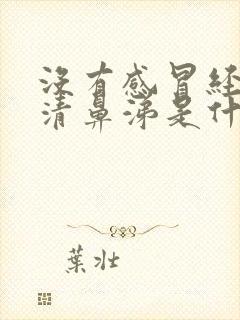 没有感冒经
清鼻涕是什
葉壮